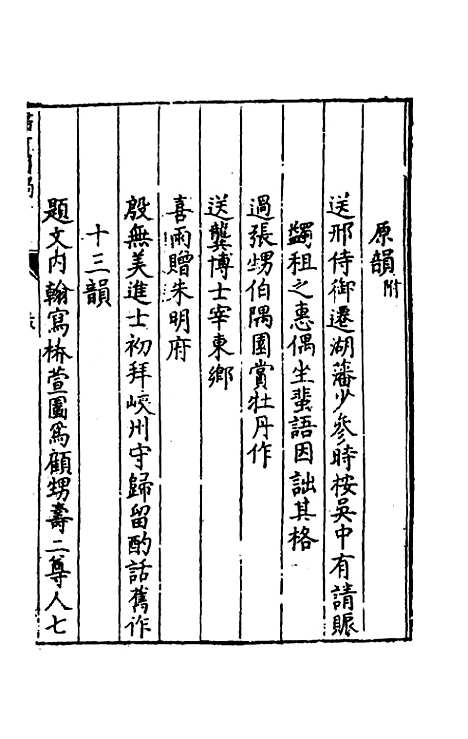 原韻附
送邢侍御遷湖藩少參時按吳中有請賑
蠲租之惠偶坐蜚語因詘其格
過張甥伯隅園賞牡丹作
送龔博士宰東鄉
喜雨贈朱明府
殷無美進士初拜峽州守歸留酌話舊作
十三韻
題文內翰寫椿萱圖爲顧甥壽二尊人七